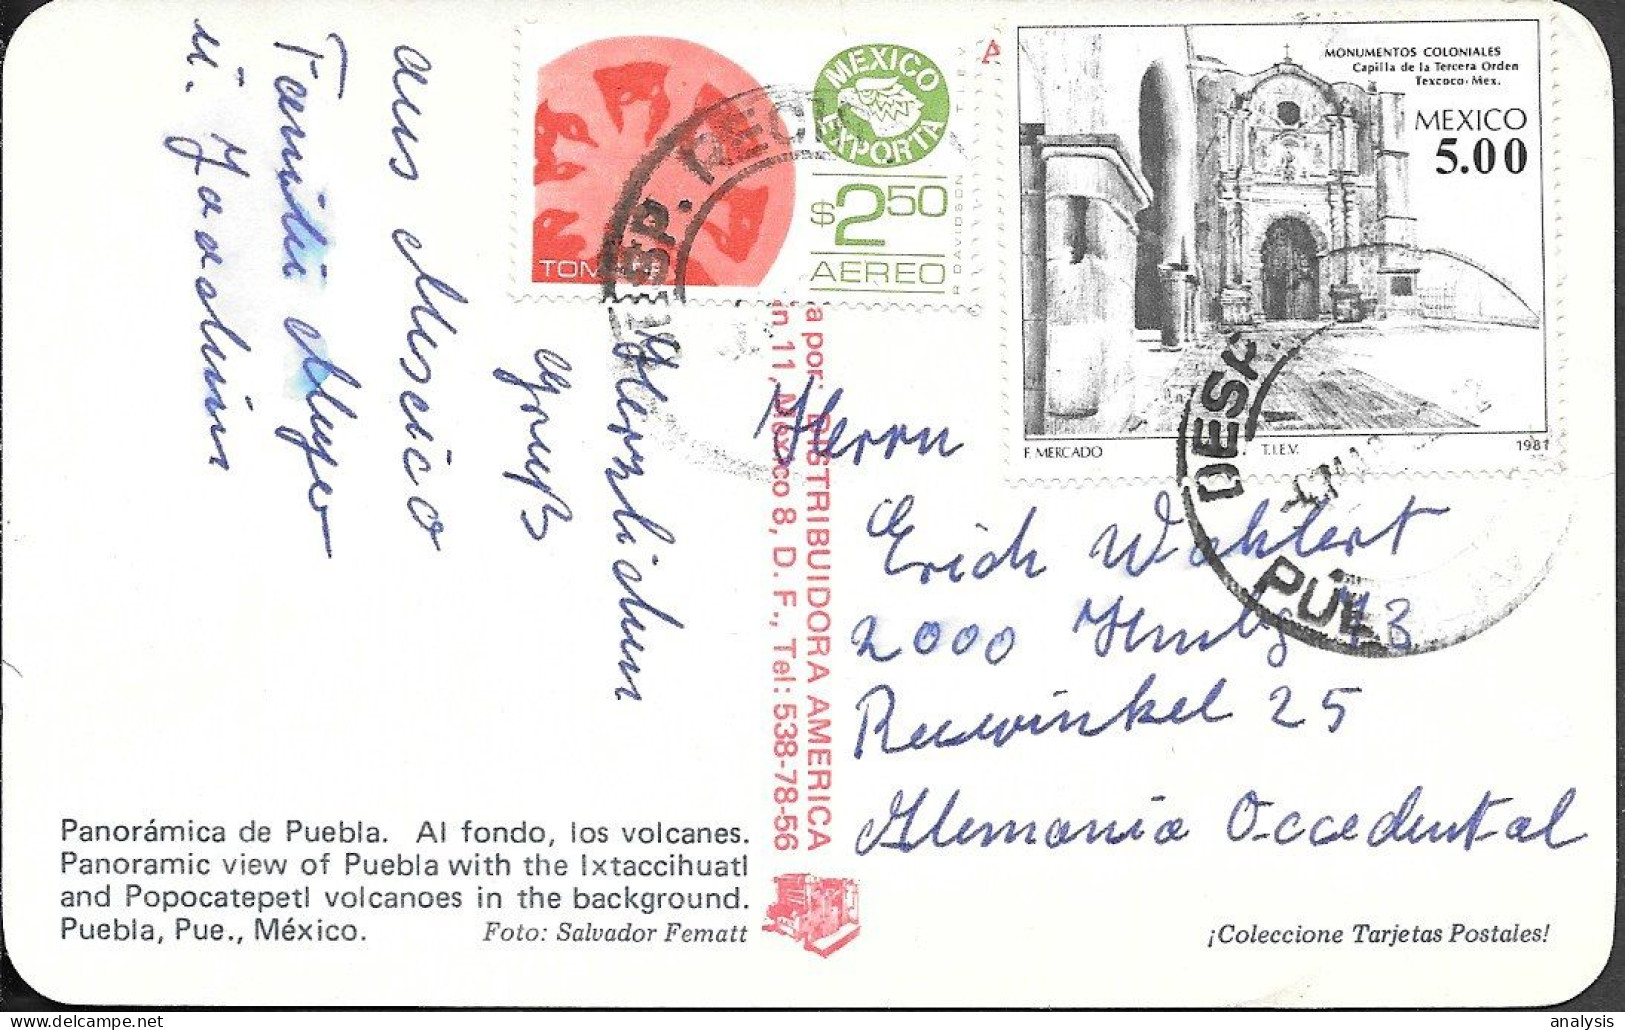 MEXICO EXPORTA
T.I.E.V.
$2.50
AEREO
R DAVIDSON
MONUMENTOS COLONIALES
Capilla de la Tercera Orden
Texcoco. Mex.
MEXICO
5.00
F. MERCADO
T.I.E.V.
1981
DESP.
Herzlichen
Gruß
aus Mexico
Familie Meyer
u. Joachim
a por: DISTRIBUIDORA AMERICA
n 11, México 8, D. F., Tel: 538-78-56
Herrn
Erich Wahlert
2000 73
25
Alemania Occedental
Panorámica de Puebla. Al fondo, los volcanes.
Panoramic view of Puebla with the Ixtaccihuatl
and Popocatepetl volcanoes in the background.
Puebla, Pue., México. Foto: Salvador Fematt
¡Coleccione Tarjetas Postales!
analysis